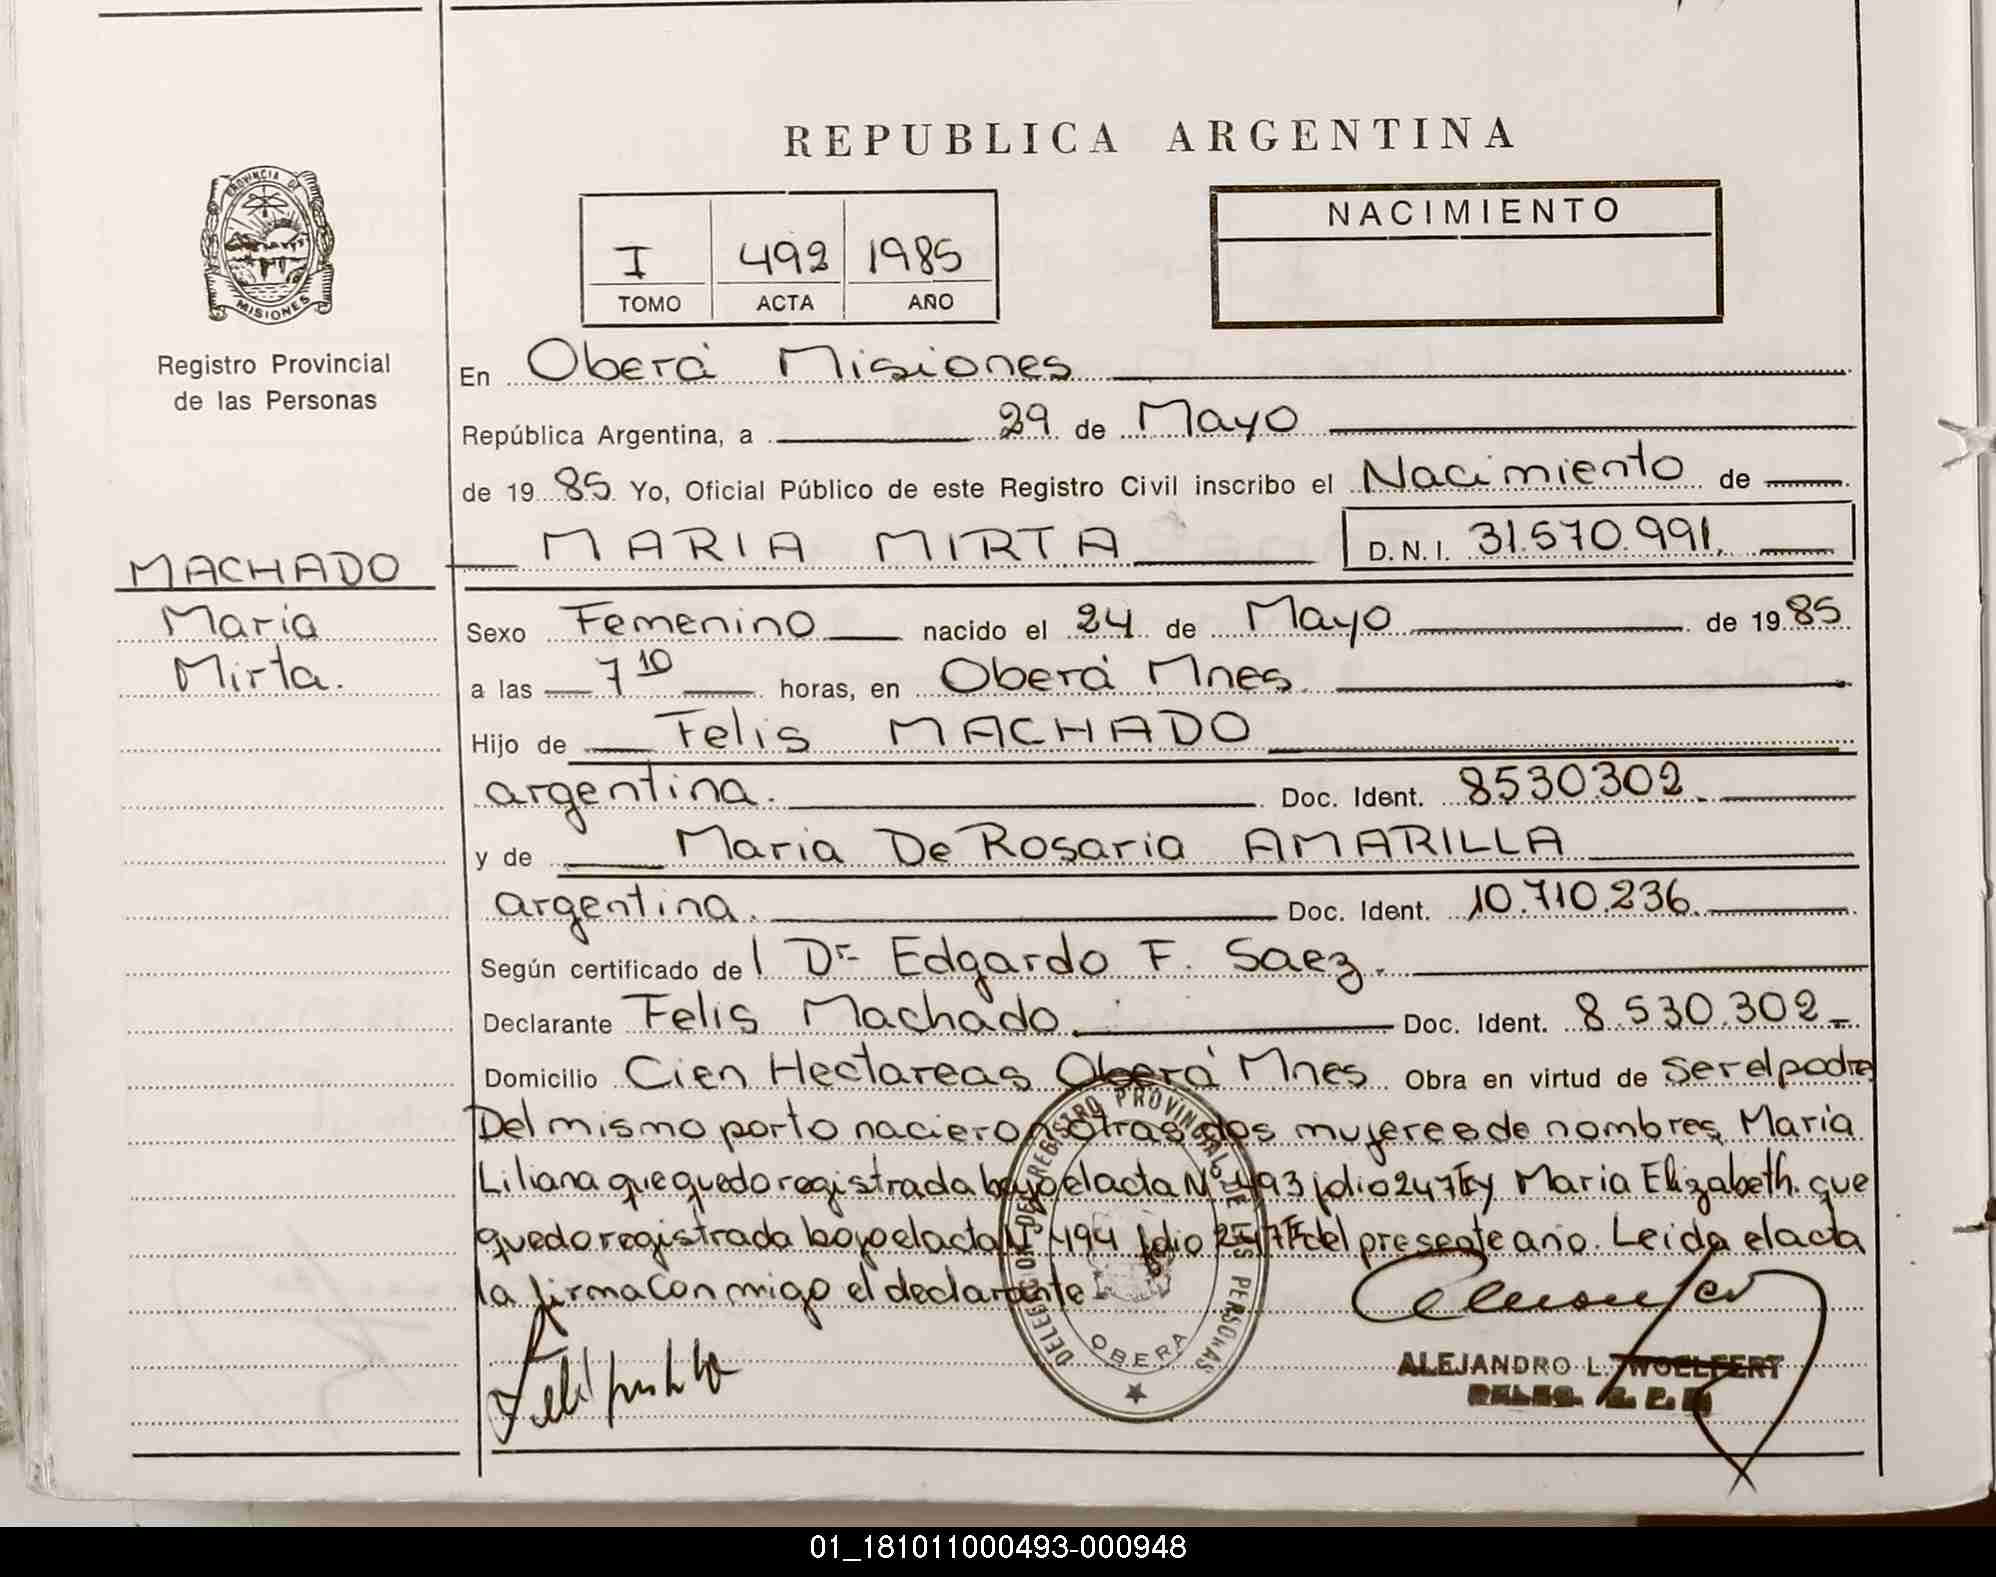 REPUBLICA ARGENTINA
PROVINCIA DE
MISIONES
Registro Provincial
de las Personas
I 492 1985
TOMO ACTA AÑO
NACIMIENTO
En Oberá Misiones
República Argentina, a 29 de Mayo
de 1985 Yo, Oficial Público de este Registro Civil inscribo el Nacimiento de
MARIA MIRTA D.N.I. 31.570.991.
MACHADO
Maria
Mirta.
Sexo Femenino nacido el 24 de Mayo de 1985
a las 7 10 horas, en Oberá Mnes.
Hijo de Felis MACHADO
argentina. Doc. Ident. 8530302
y de Maria De Rosaria AMARILLA
argentina. Doc. Ident. 10.710.236.
Según certificado del Dr. Edgardo F. Saez.
Declarante Felis Machado. Doc. Ident. 8.530.302
Domicilio Cien Hectareas Oberá Mnes Obra en virtud de ser el padre
Del mismo parto nacieron otras dos mujeres de nombres, Maria
Liliana que quedo registrada bajo el acta Nº 493 folio 247 y Maria Elizabeth. que
quedo registrada bajo el acta Nº 494 folio 247 del presente año. Leida el acta
la firma conmigo el declarante
DELEGACION DE REGISTRO PROVINCIAL DE LAS PERSONAS
OBERA
ALEJANDRO L. WOELFERT
01_181011000493-000948